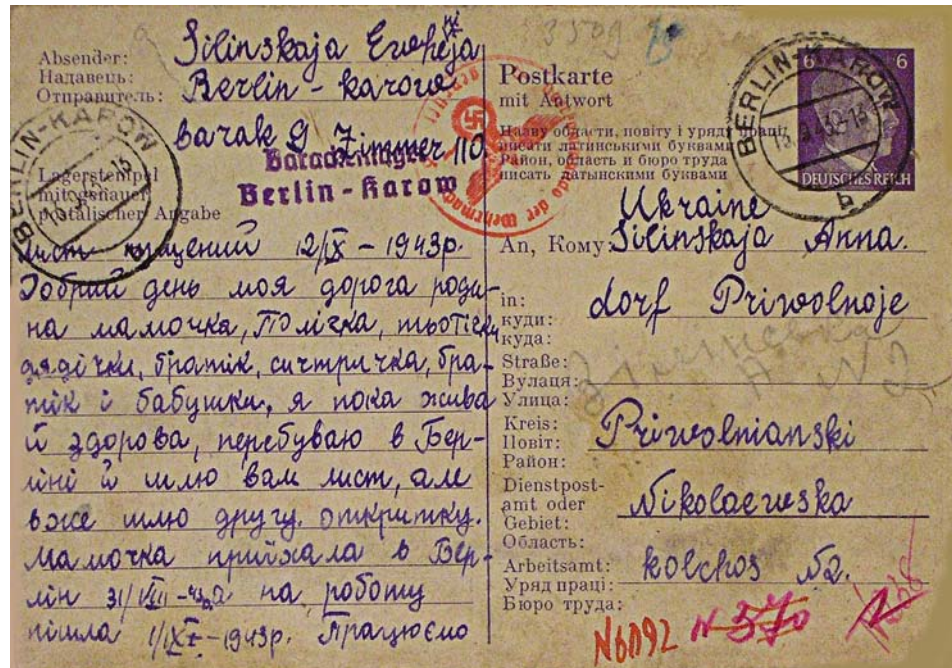 Absender:
Надавець:
Отправитель:
Silinskaja
Berlin - Karow
barak 9 Zimmer 110
Barackenlager
Berlin-Karow
Lagerstempel
mit genauer
postalischer Angabe
BERLIN-KAROW
Лист пищений 12/IX - 1943р.
Добрий день моя дорога роди-
на мамочка, Полічка,
дядічки, братік, систричка, бра-
тік і бабушка, я пока жива
й здорова, перебуваю в Бер-
ліні й шлю вам лист, але
вже шлю другу откритку.
Мамочка приїхала в Бер-
лін 31/VIII на роботу
пішла 1/IX - 1943р. Працюємо
Postkarte
mit Antwort
Назву области, повіту і уряду праці
писати латинськими буквами
Район, область и бюро труда
писать латынскими буквами
BERLIN-KAROW
6 6
DEUTSCHES REICH
der Wehrmacht
Ukraine
An, Кому: Silinskaja Anna.
in:
куди:
куда:
dorf Priwolnoje
Straße:
Вулаця:
Улица:
Kreis:
Повіт:
Район:
Priwolnianski
Dienstpost-
amt oder
Gebiet:
Область:
Nikolaewska
Arbeitsamt:
Уряд праці:
Бюро труда:
kolchos №2.